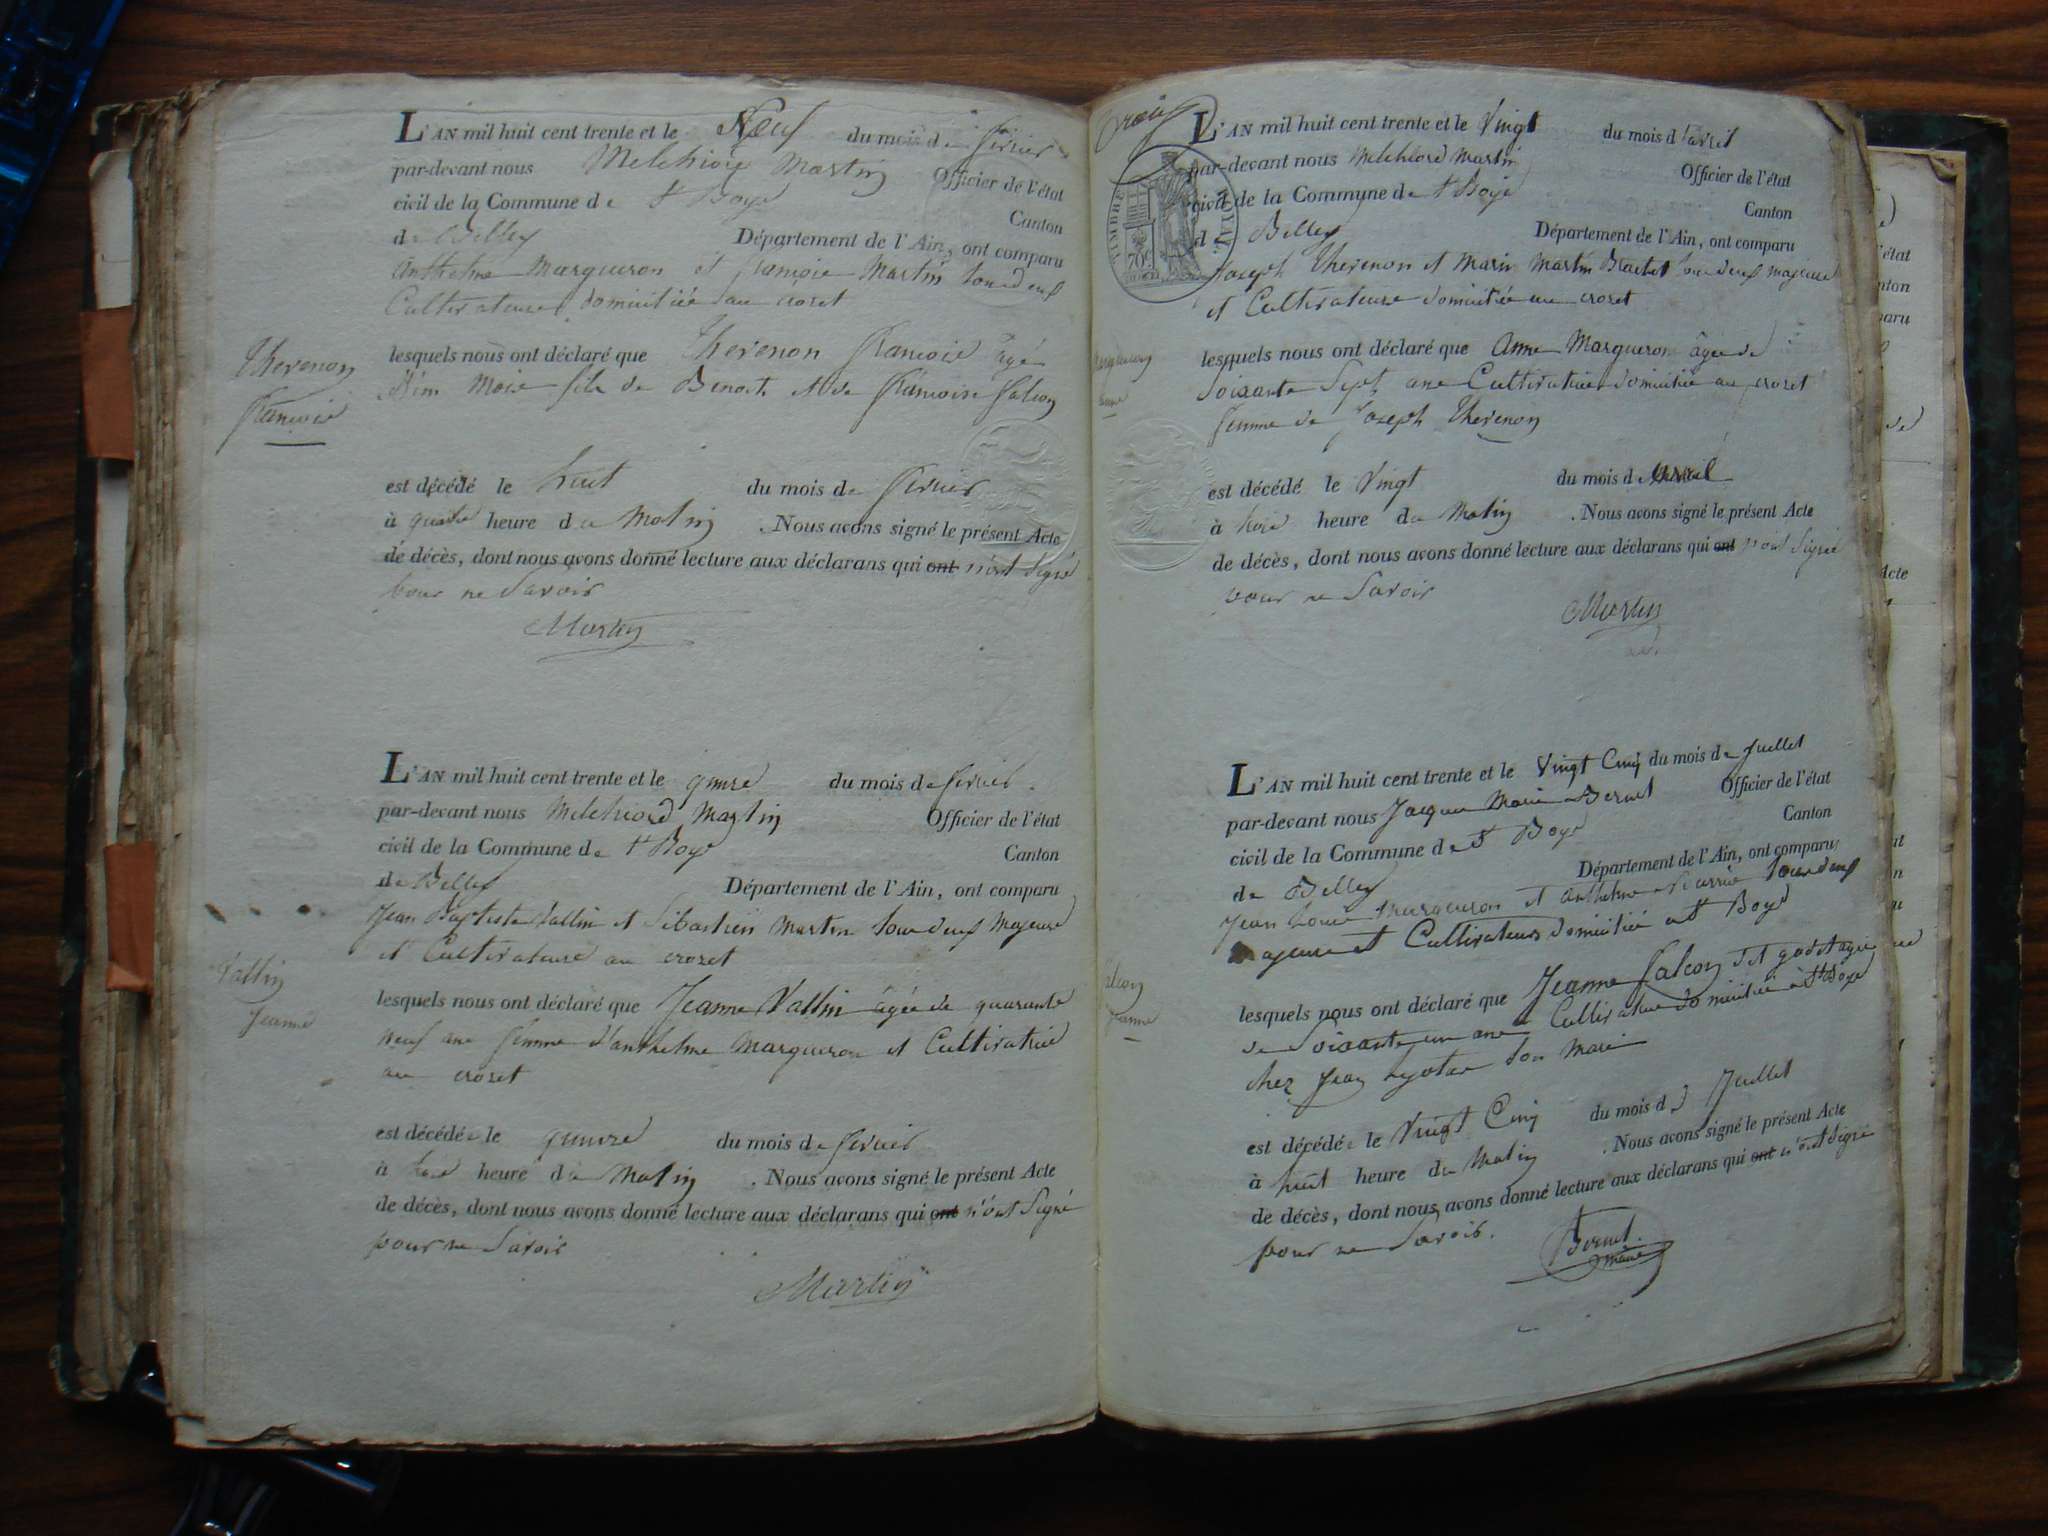 L'AN mil huit cent trente et le Neuf du mois de fevrier
par-devant nous Melchior Martin Officier de l'état
civil de la Commune de St Boys Canton
de Belley Département de l'Ain, ont comparu
Anthelme Margueron et françois Martin tous deux
Cultivateurs domiciliés au crozet
Thevenon
françois
lesquels nous ont déclaré que Thevenon françois agé
mois fils de Benoit et de françoise falcon
est décédé le huit du mois de fevrier
à quatre heure du Matin . Nous avons signé le présent Acte
de décès, dont nous avons donné lecture aux déclarans qui ont n'ont signé
pour ne Savoir
Martin
L'AN mil huit cent trente et le quinze du mois de fevrier.
par-devant nous Melchiord Martin Officier de l'état
civil de la Commune de St Boys Canton
de Belley Département de l'Ain, ont comparu
Jean Baptiste Vallin et Sibastien Martin tous deux Majeurs
et Cultivateurs au crozet
Vallin
Jeanne
lesquels nous ont déclaré que Jeanne Vallin agée de quarante
neuf ans femme d'anthelme Margueron et Cultivatrice
au crozet
est décédée le quinze du mois de fevrier
à trois heure du Matin . Nous avons signé le présent Acte
de décès, dont nous avons donné lecture aux déclarans qui ont n'ont Signé
pour ne Savoir
Martin
L'AN mil huit cent trente et le Vingt du mois d'avril
par-devant nous Melchiord Martin Officier de l'état
TIMBRE ROYAL
70C
civil de la Commune de St Boys Canton
de Belley Département de l'Ain, ont comparu
Joseph Thevenon et Marin Martin Brachet tous deux majeurs
et Cultivateurs domiciliés au crozet
lesquels nous ont déclaré que Anne Margueron âgée de
Soixante Sept ans Cultivatrice domiciliée au crozet
femme de Joseph Thevenon
est décédé le Vingt du mois d avril
à trois heure du Matin . Nous avons signé le présent Acte
de décès, dont nous avons donné lecture aux déclarans qui ont n'ont Signé
pour ne Savoir
Martin
L'AN mil huit cent trente et le Vingt Cinq du mois de Juillet
par-devant nous Jacques Marie Bernet Officier de l'état
civil de la Commune de St Boys Canton
de Belley Département de l'Ain, ont comparu
Jean Louis Margueron et anthelme tous deux
majeurs et Cultivateurs domiciliés a St Boys
lesquels nous ont déclaré que Jeanne falcon dit godet agée
de Soixante un ans Cultivatrice domiciliée à St Boys
chez Jean son mari
est décédée le Vingt Cinq du mois de Juillet
à huit heure du Matin . Nous avons signé le présent Acte
de décès, dont nous avons donné lecture aux déclarans qui ont n'ont Signé
pour ne Savoir.
Bernet
maire